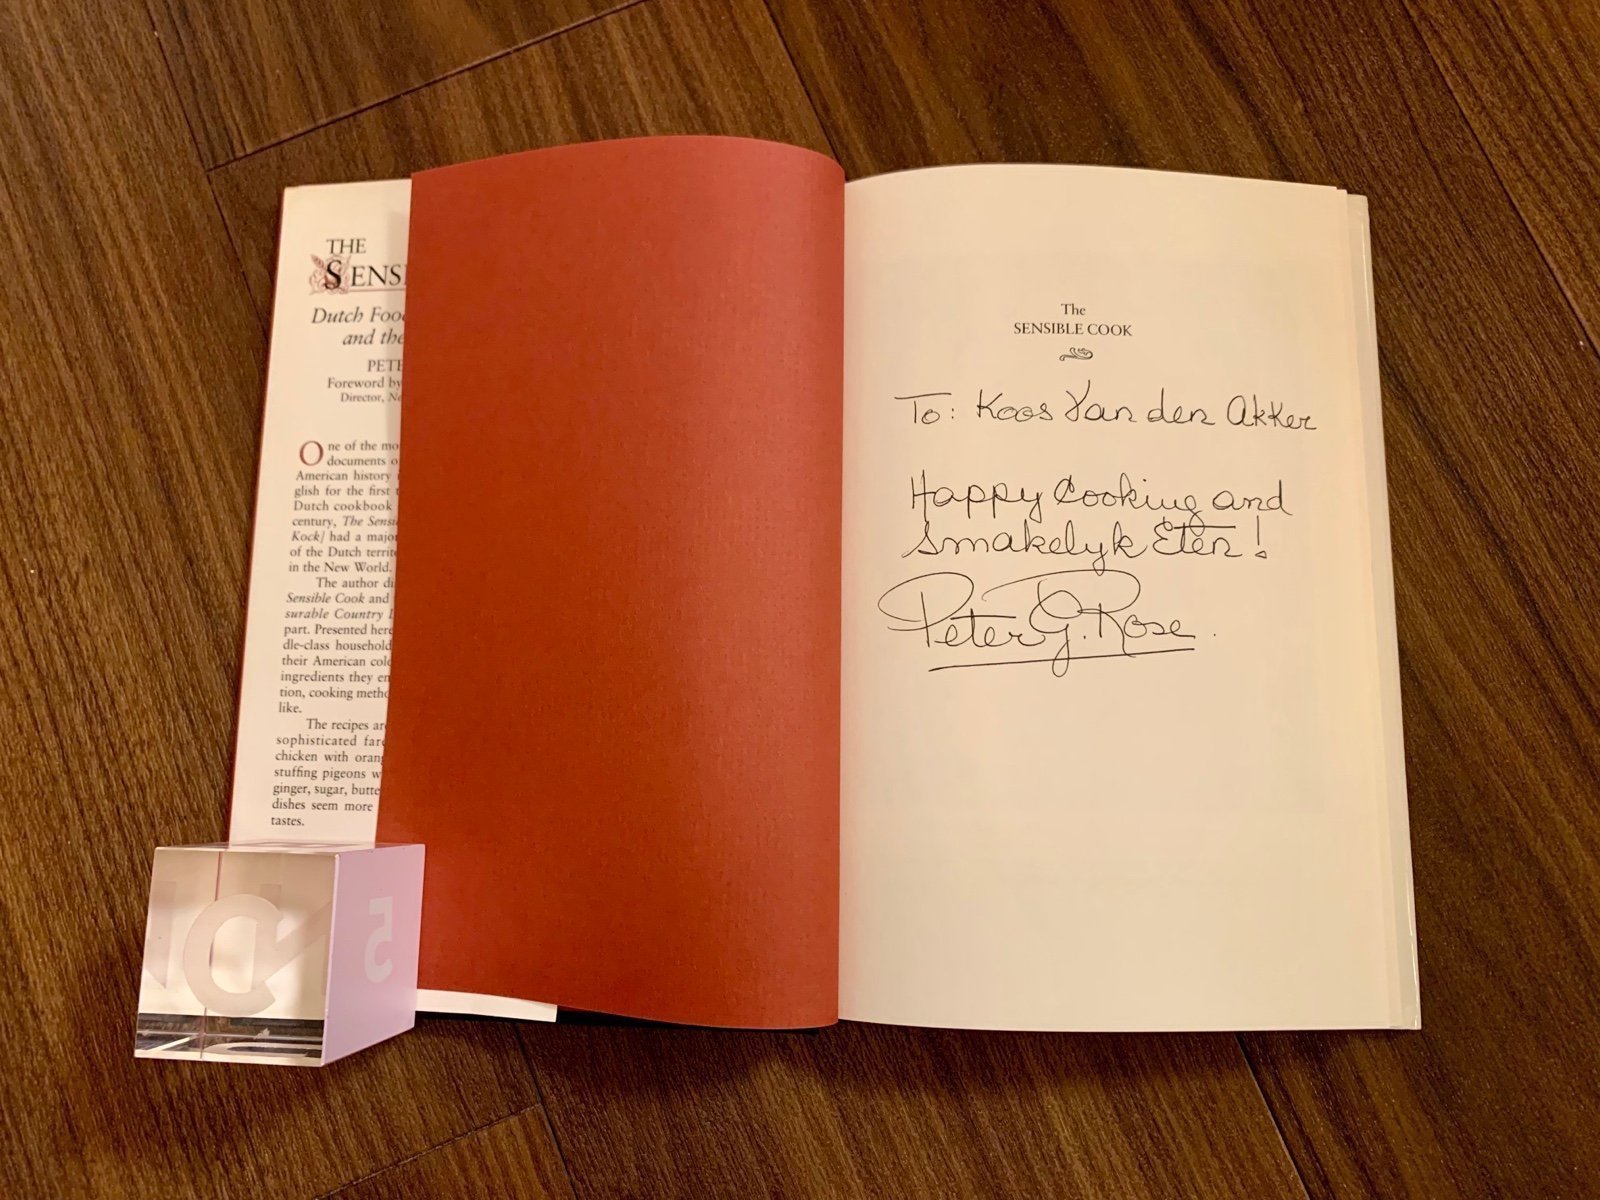 THE
SENSI
Dutch Foo
and the
PETE
Foreword by
Director, Ne
One of the mo
documents o
American history
glish for the first t
Dutch cookbook
century, The Sensi
Kock] had a major
of the Dutch territ
in the New World.
The author di
Sensible Cook and
surable Country L
part. Presented here
dle-class household
their American colo
ingredients they en
tion, cooking metho
like.
The recipes are
sophisticated fare
chicken with orang
stuffing pigeons w
ginger, sugar, butte
dishes seem more
tastes.
5
The
SENSIBLE COOK
To: Koos Van den Akker
Happy Cooking and
Smakelyk Eten!
Peter G. Rose.